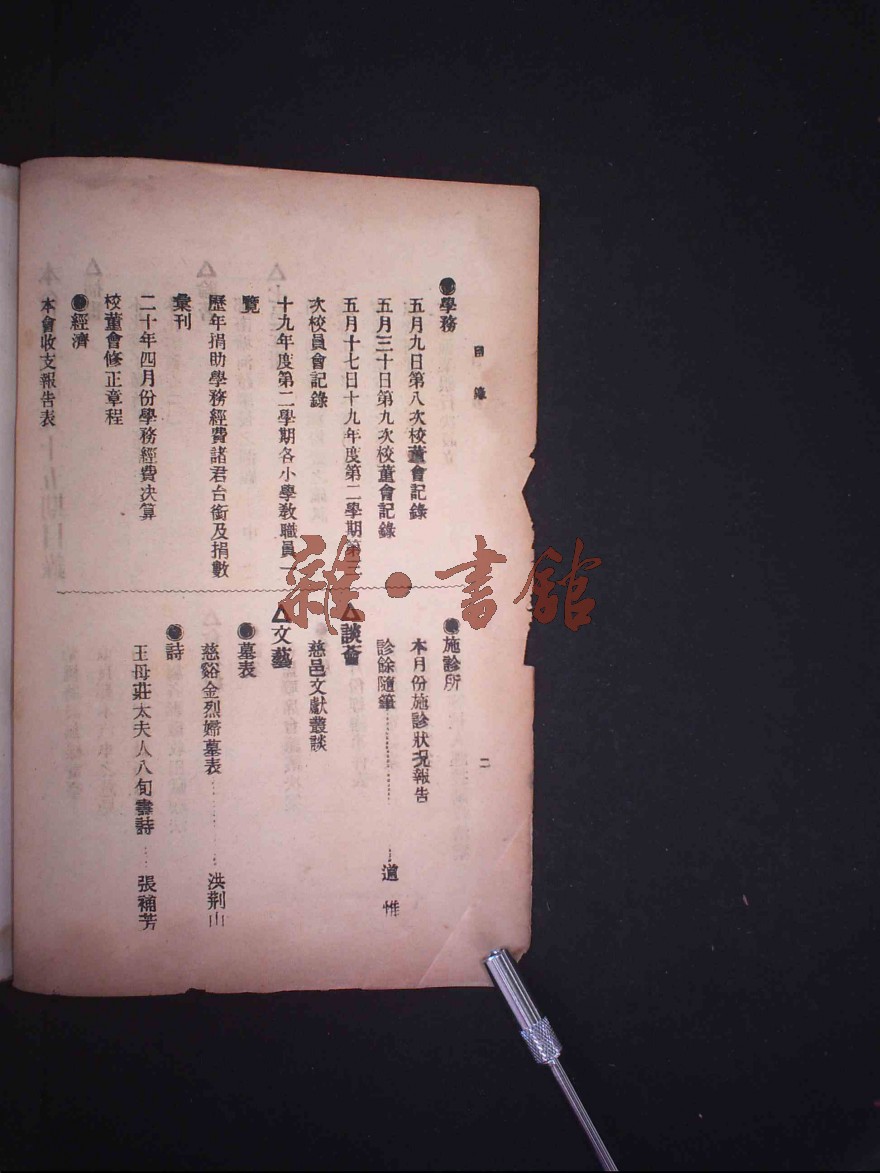 目錄
二
●學務
五月九日第八次校董會記錄
五月三十日第九次校董會記錄
五月十七日十九年度第二學期第三
次校員會記錄
十九年度第二學期各小學教職員一
覽
歷年捐助學務經費諸君台銜及捐數
彙刊
二十年四月份學務經費决算
校董會修正章程
●經濟
本會收支報告表
●施診所
本月份施診狀況報告
診餘隨筆…………道惟
△談薈
慈邑文獻叢談
△文藝
●墓表
慈谿金烈婦墓表………洪荆山
●詩
王母莊太夫人八旬壽詩……張補芳
雜·書館